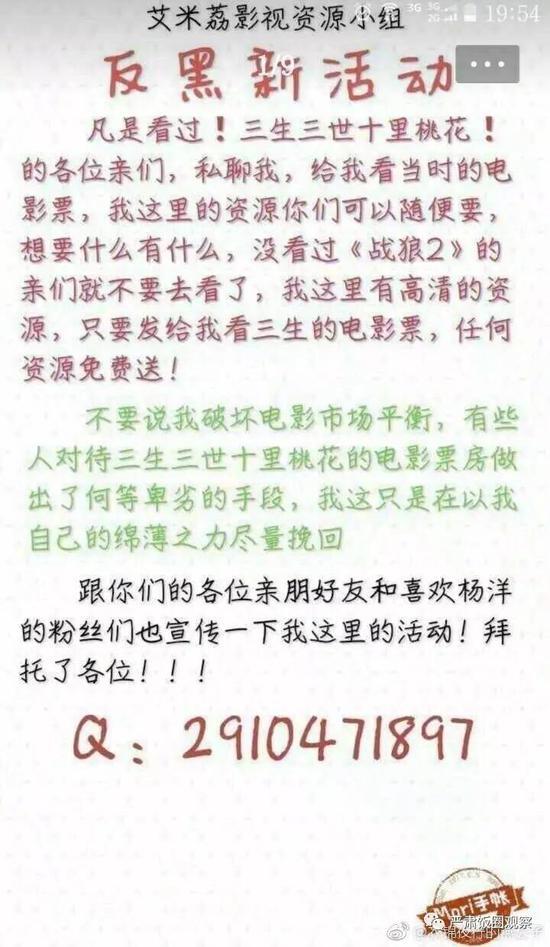 19:54
艾米荔影视资源小组
反黑新活动
1/9
凡是看过！三生三世十里桃花！
的各位亲们，私聊我，给我看当时的电
影票，我这里的资源你们可以随便要，
想要什么有什么，没看过《战狼2》的
亲们就不要去看了，我这里有高清的资
源，只要发给我看三生的电影票，任何
资源免费送！
不要说我破坏电影市场平衡，有些
人对待三生三世十里桃花的电影票房做
出了何等卑劣的手段，我这只是在以我
自己的绵薄之力尽量挽回
跟你们的各位亲朋好友和喜欢杨洋
的粉丝们也宣传一下我这里的活动！拜
托了各位！！！
Q：2910471897
Mori手帐
严肃饭圈观察